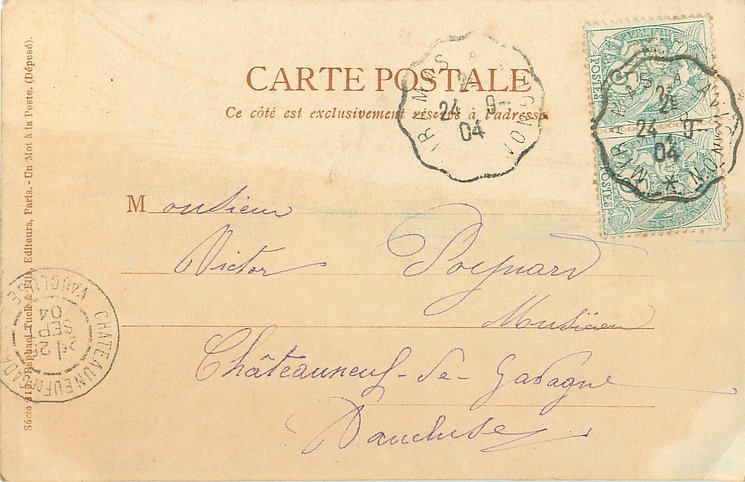 CARTE POSTALE
Ce côté est exclusivement réservé à l'adresse
MIRAMAS A AVIGNON
2E
24 9-
04
MIRAMAS A AVIGNON
2E
24 9-
04
POSTES
POSTES
Monsieur
Victor Poynard
Musicien
Châteauneuf-de-Gadagne
Vaucluse
CHATEAUNEUF-DE-GADAGNE
VAUCLUSE
SEP
04
Raphael Tuck & Fils, Editeurs, Paris.-Un Mot à la Poste. (Déposé).